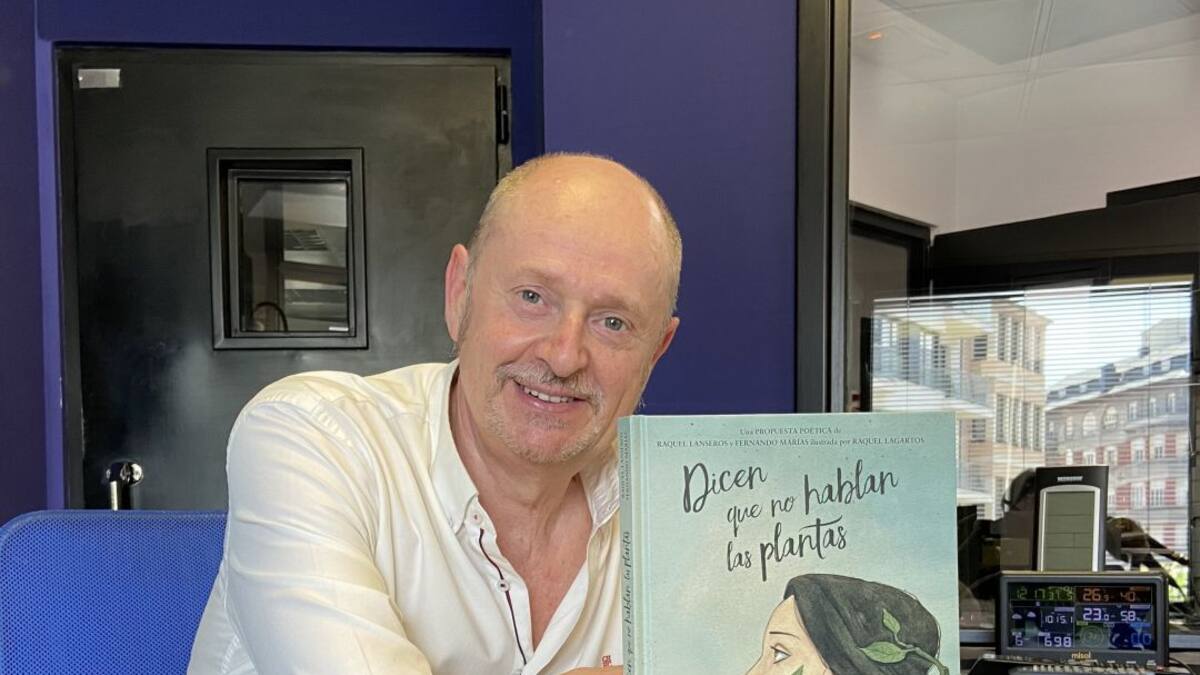 Una PROPUESTA POÉTICA de
RAQUEL LANSEROS y FERNANDO MARÍAS ilustrada por RAQUEL LAGARTOS
Dicen
que no hablan
las plantas
que no hablan las plantas
26.9 40
23.0 58
1015.1
6 698
misol